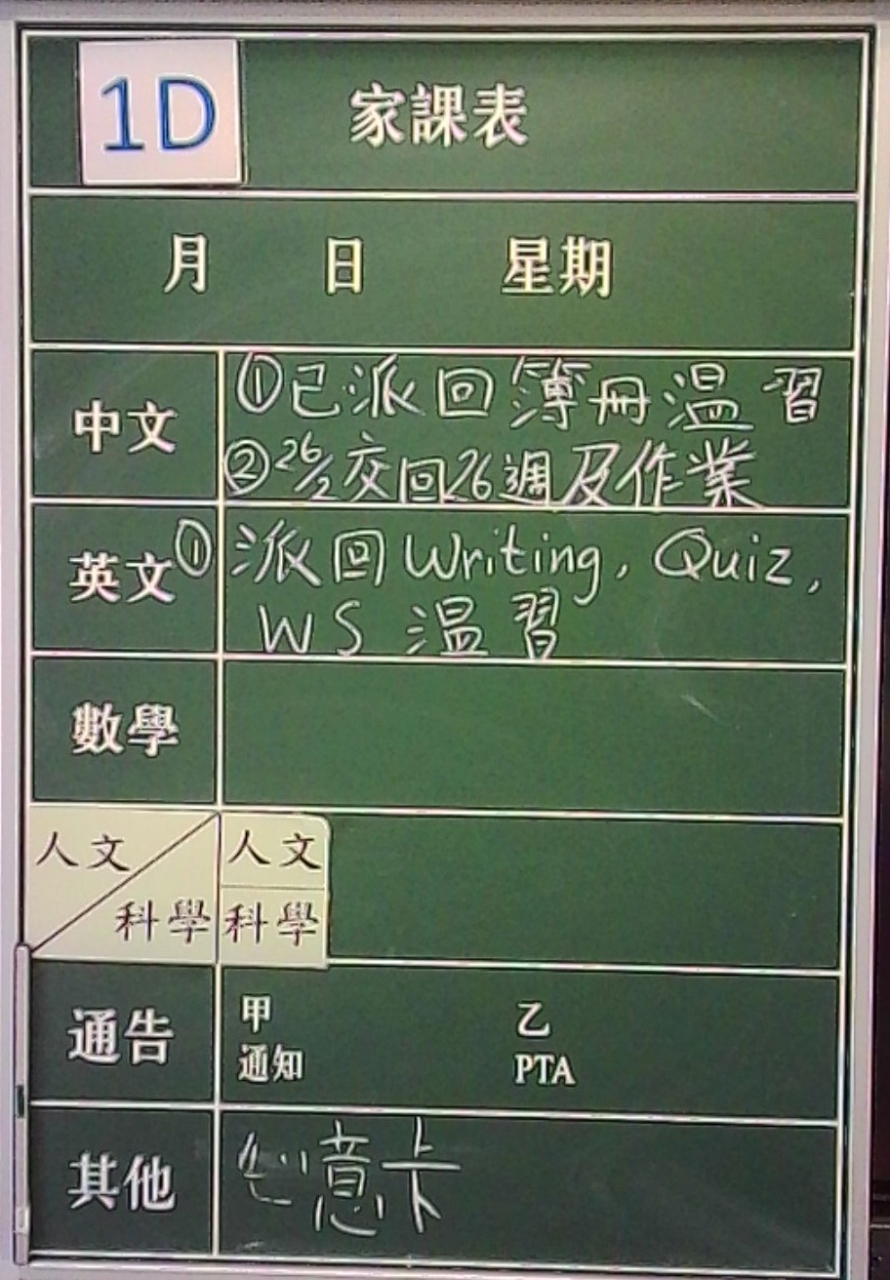 1D 家課表
月 日 星期
中文 ①已派回簿冊温習
②26/2交回26週及作業
英文 ①派回Writing, Quiz,
WS 温習
數學
人文 人文
科學 科學
通告 甲 乙
通知 PTA
其他 心意卡